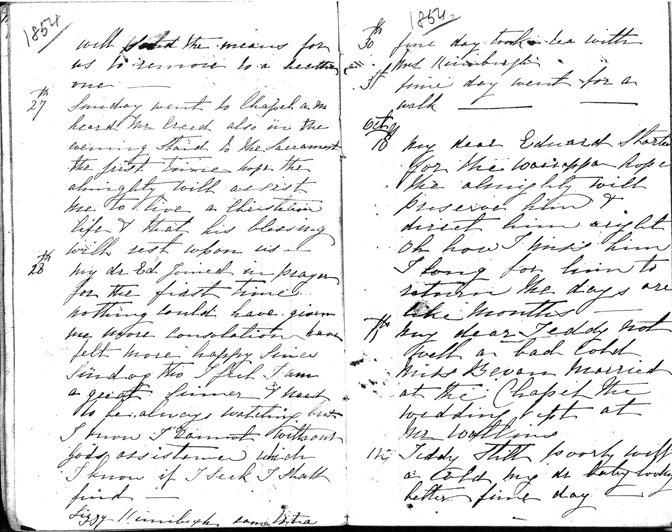 1854
will send the means for
us to remove to a better
one —
27th Sunday went to Chapel a.m.
heard Mr Creed also in the
evening Staid to the Sacrament
the first time hope the
almighty will assist
me to live a Christian
life & that his blessing
will rest upon us —
28th my dr Ed Joined in prayer
for the first time
nothing could have given
me more consolation have
felt more happy Since
Sunday tho I feel I am
a great Sinner & need
to be always watching but
I know I cannot without
gods assistance which
I know if I Seek I Shall
find —
Lizzy Kimbigh came to tea
1854
30th fine day took tea with
Mrs
31st fine day went for a
walk — —
Octr
10 my dear Edward Started
for the Wairappa hope
the almighty will
preserve him &
direct him aright
Oh how I miss him
I long for him to
return the days are
like months —
11th my dear Teddy not
Well a bad Cold
Miss Bevan Married
at the Chapel the
wedding kept at
Mr Wallins
12th Teddy Still poorly with
a Cold my dr baby
better fine day